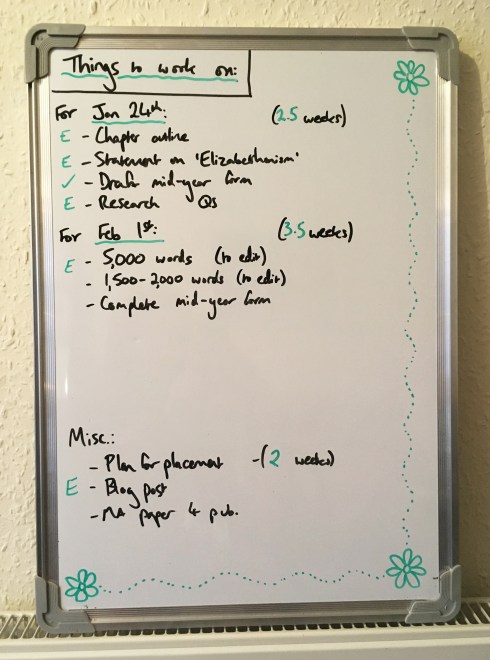 Things to work on:
For Jan 24th: (2.5 weeks)
E - Chapter outline
E - Statement on 'Elizabethanism'
✓ - Draft mid-year form
E - Research Qs
For Feb 1st: (3.5 weeks)
E - 5,000 words (to edit)
- 1,500-2,000 words (to edit)
- Complete mid-year form
Misc.:
- Plan for placement - (2 weeks)
E - Blog post
- MA paper 4 pub.